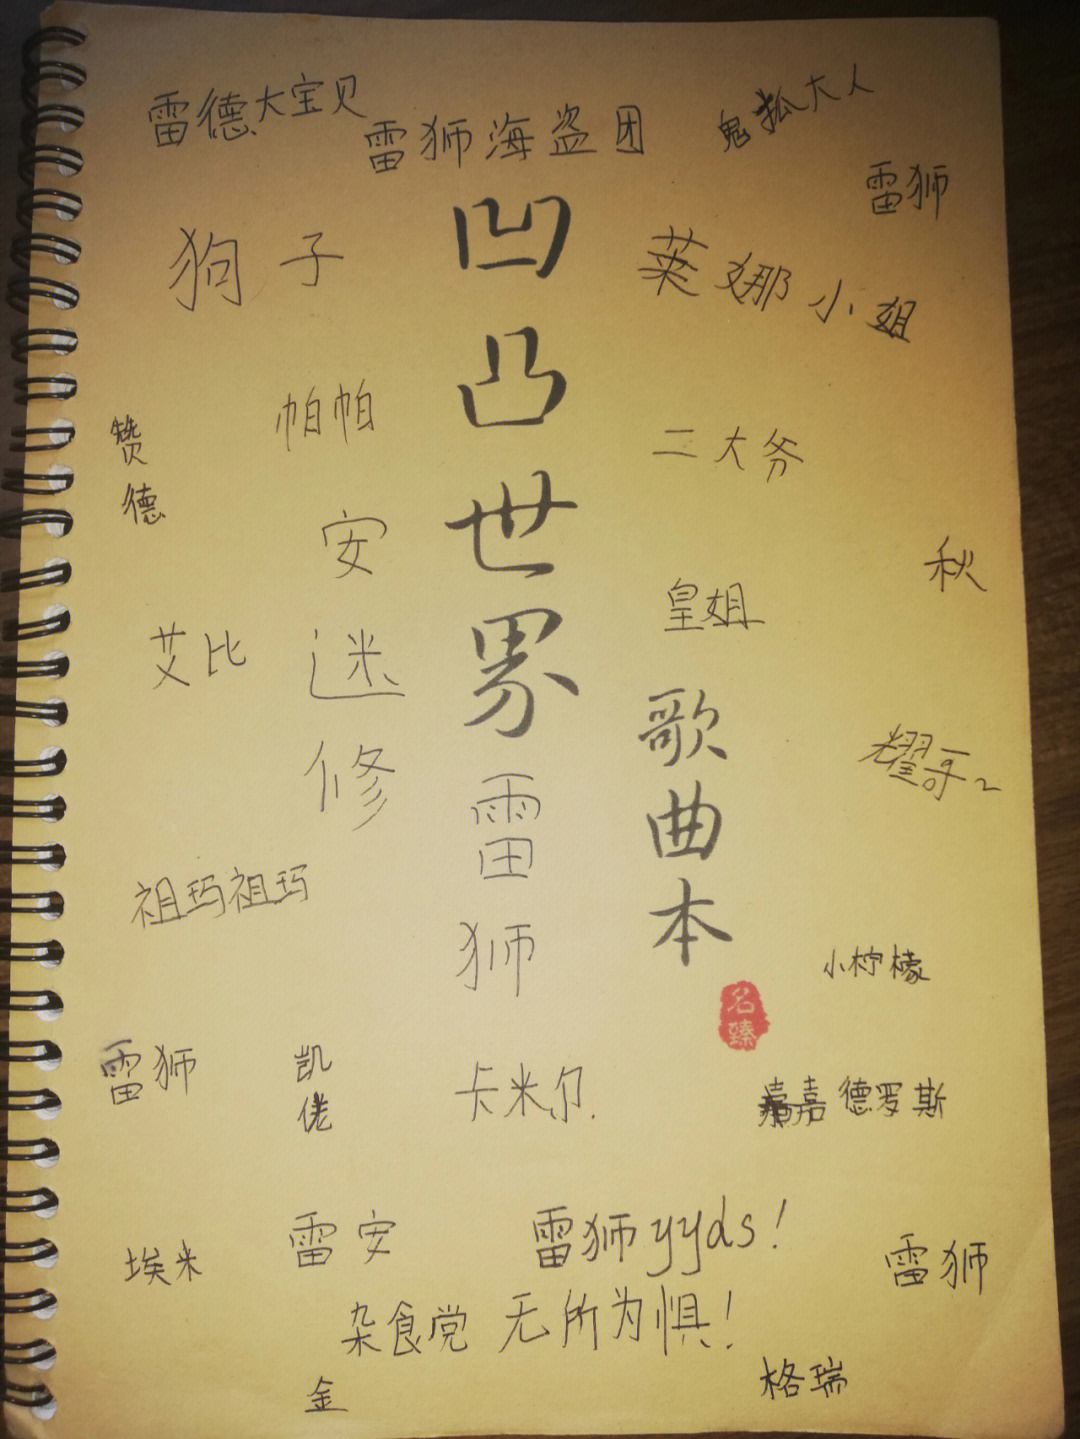 雷德大宝贝
雷狮海盗团
鬼狐大人
雷狮
狗子
凹凸世界
莱娜小姐
帕帕
二大爷
赞德
安迷修
秋
皇姐
艾比
歌曲本
耀哥~
雷狮
祖玛祖玛
小柠檬
名臻
雷狮
凯佬
卡米尔
嘉德罗斯
雷安
雷狮yyds!
埃米
雷狮
杂食党 无所为惧!
格瑞
金